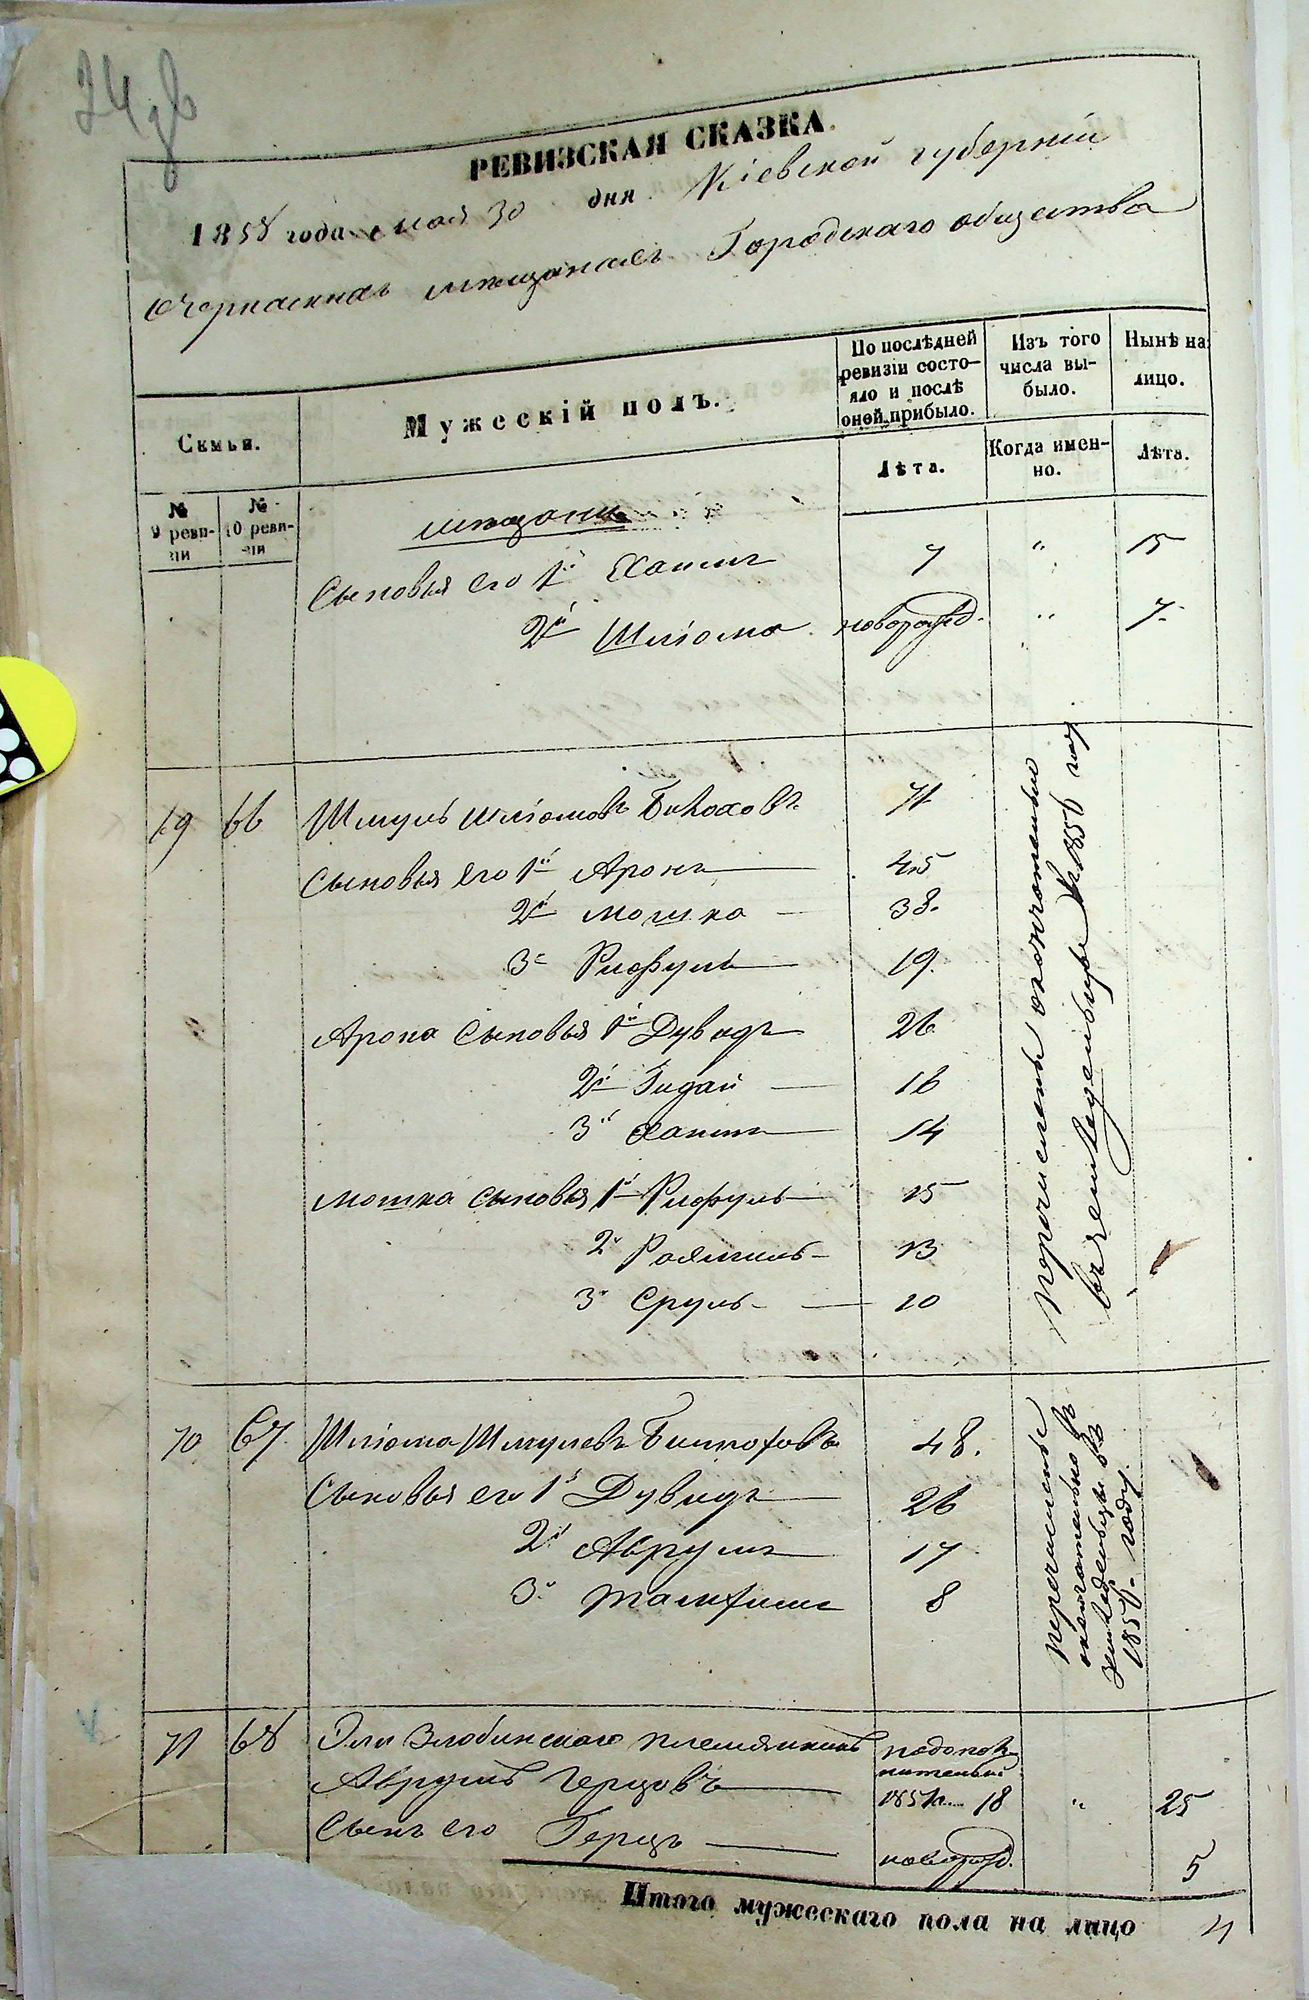 РЕВИЗСКАЯ СКАЗКА
1858 года мая 30 дня Кіевской губерніи
мѣщанахъ Городскаго общества
Семьи.
Мужескій полъ.
По послѣдней ревизіи состояло и послѣ оной прибыло.
Изъ того числа выбыло.
Нынѣ на лицо.
Лѣта.
Когда именно.
Лѣта.
№ 9 ревизіи
№ 10 ревизіи
мѣщане
Сыновья его 1й Хаимъ 7 " 15
2й Шліома новорожд. " 7
69 66 Шмуль Шліомовъ 71
Сыновья его 1й Аронъ 45
2й Мошко 38.
3й Рафуль 19.
Арона сыновья 1й Дувидъ 26
2й Гидай 16
3й Хаимъ 14
Мошка сыновья 1й Рафуль 15
2й 13
3й Сруль 10
перечислены окончательно
въ земледѣльцы въ 1857 году
70 67 Шліома Шмулевъ 48.
Сыновья его 1й Дувидъ 26
2й Аврумъ 17
3й 8
перечислены
окончательно въ
земледѣльцы въ
185 году.
71 68 Эли Злобинскаго племянникъ
Аврумъ Герцовъ 18 " 25
Сынъ его Герцъ новорожд. 5
Итого мужескаго пола на лицо 4